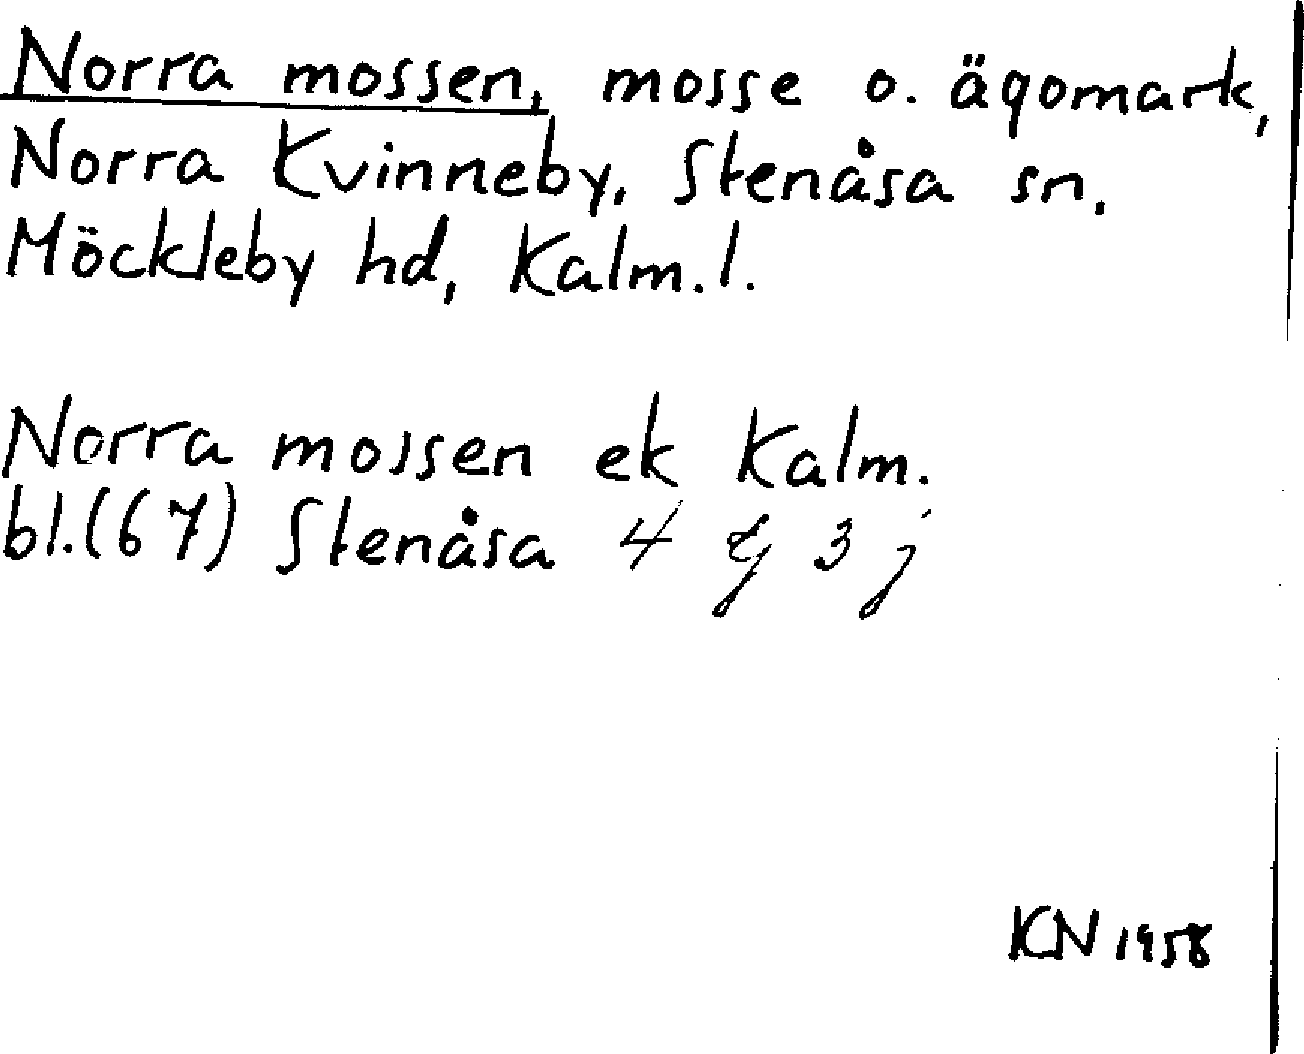 Norra mossen, mosse o. ägomark,
Norra Kvinneby, Stenåsa sn,
Möckleby hd, Kalm. l.
Norra mossen ek Kalm.
bl.(67) Stenåsa 4 g 3 j
KN 1958